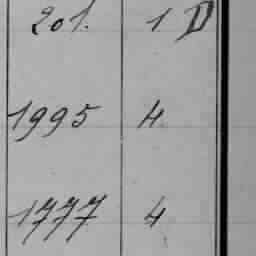 201. 1 D
1995 4
1777 4